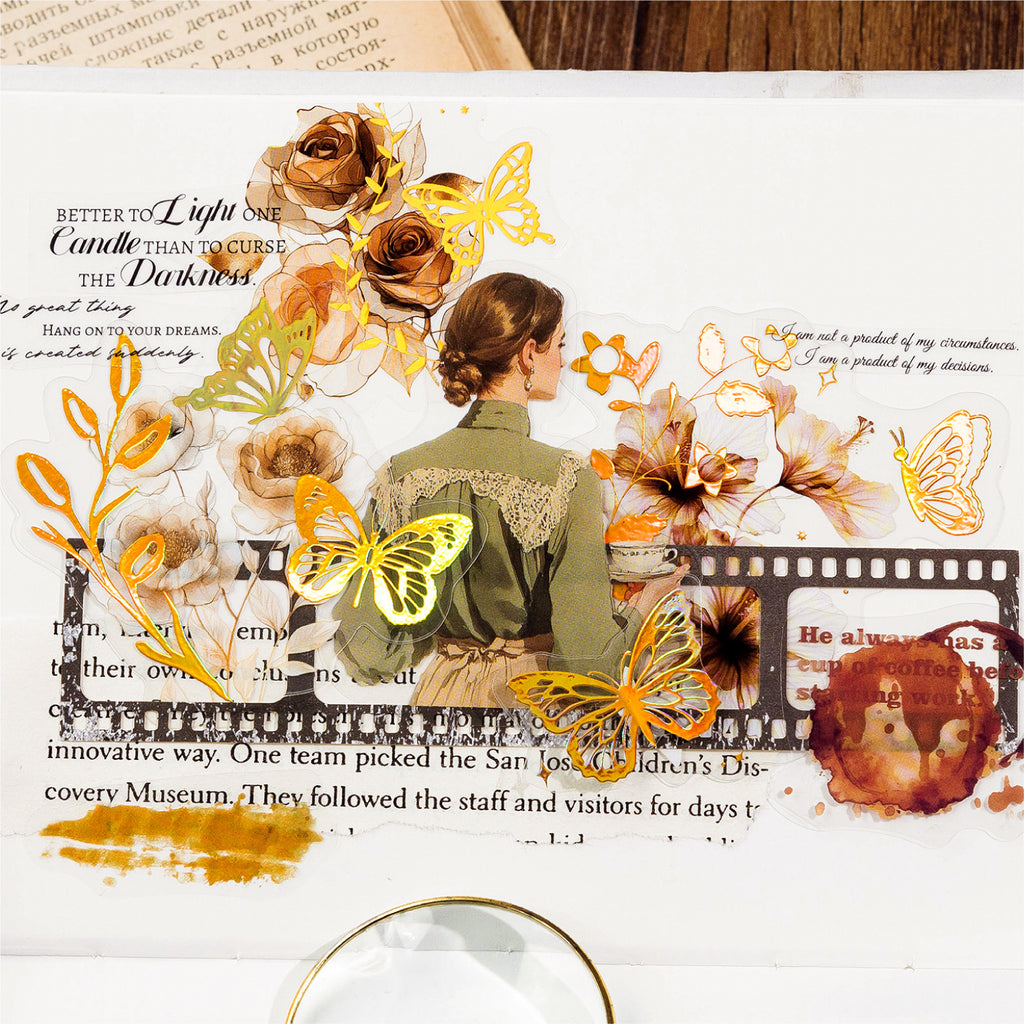 водить с
разъемных детали с наружн
ачей штамповки
сложные детали
также с
разъемной мат-
в которую
состоя-
рх-
BETTER TO Light ONE
Candle THAN TO CURSE
THE Darkness.
No great thing
HANG ON TO YOUR DREAMS.
is created suddenly.
I am not a product of my circumstances.
I am a product of my decisions.
He always has a
cup of coffee before
starting work.
to their own
innovative way. One team picked the San Jose Children's Dis-
covery Museum. They followed the staff and visitors for days to